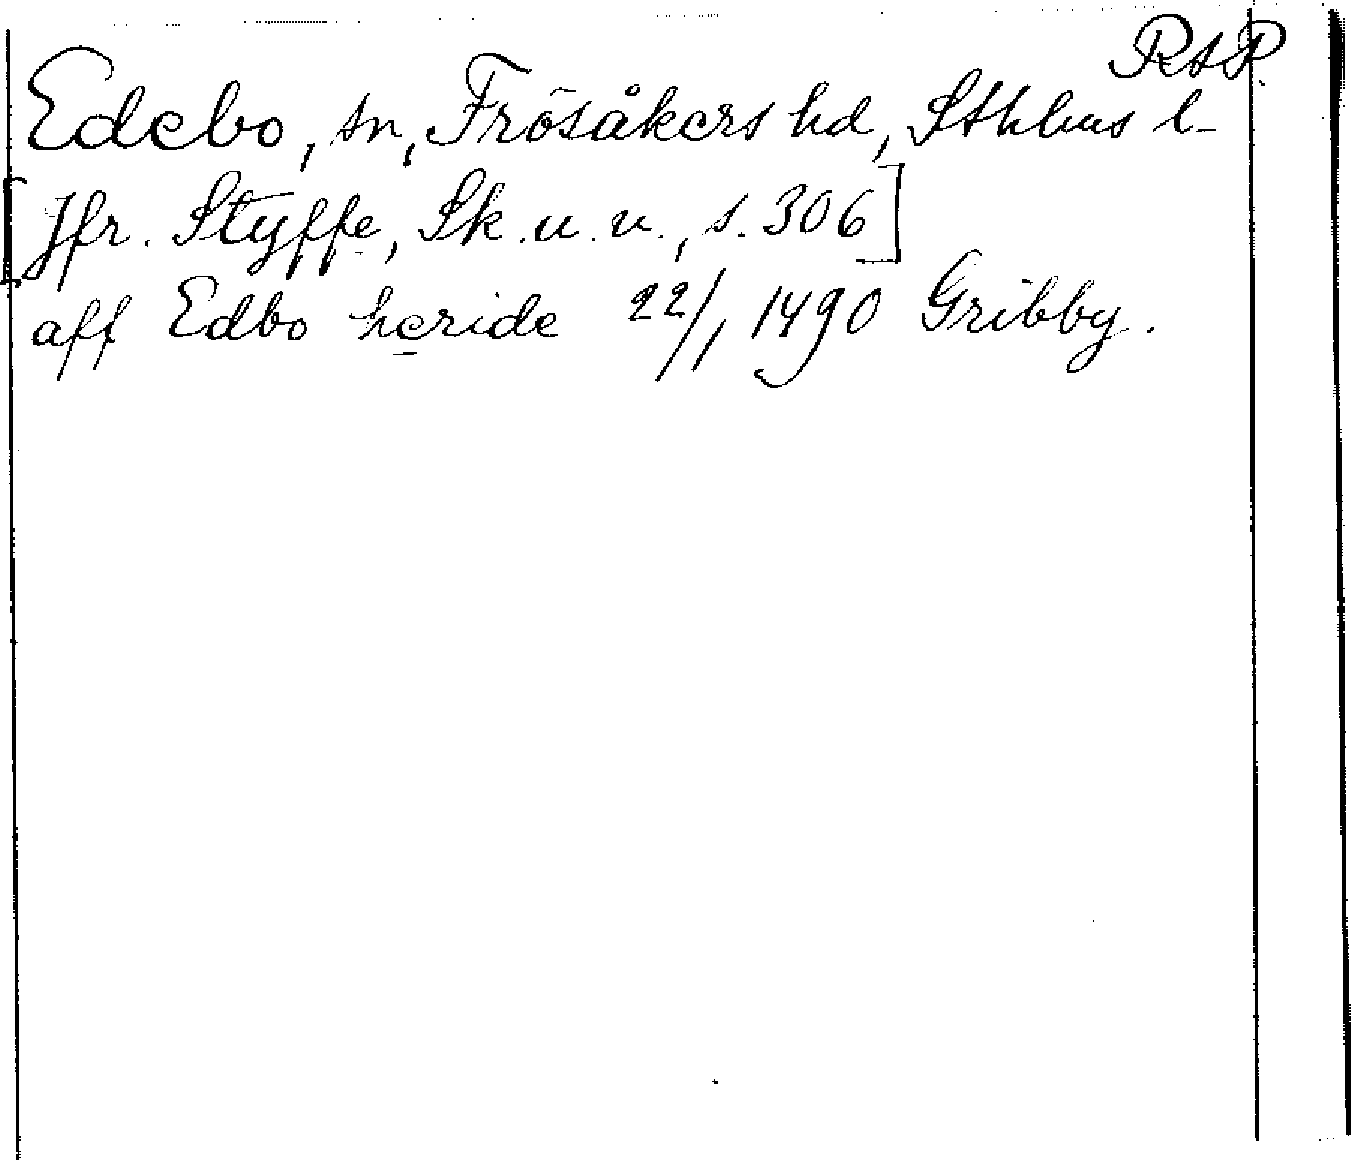 RAP.
Edebo, sn, Frösåkers hd, Sthlms l-
[Jfr. Styffe, Sk. u. u., s. 306]
aff Edbo heride 22/1 1490 Gribby.